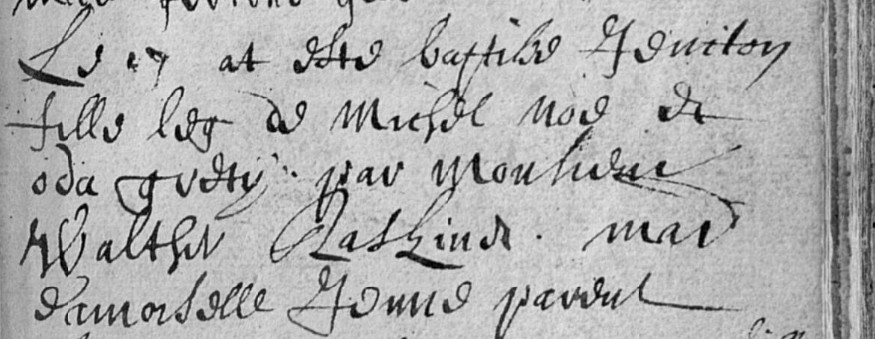 Le 27 at este baptise Jeniton
fille leg de Michel Noe et
oda grety par Monsieur
Walther Raskinet mar
damoiselle Jenne parent